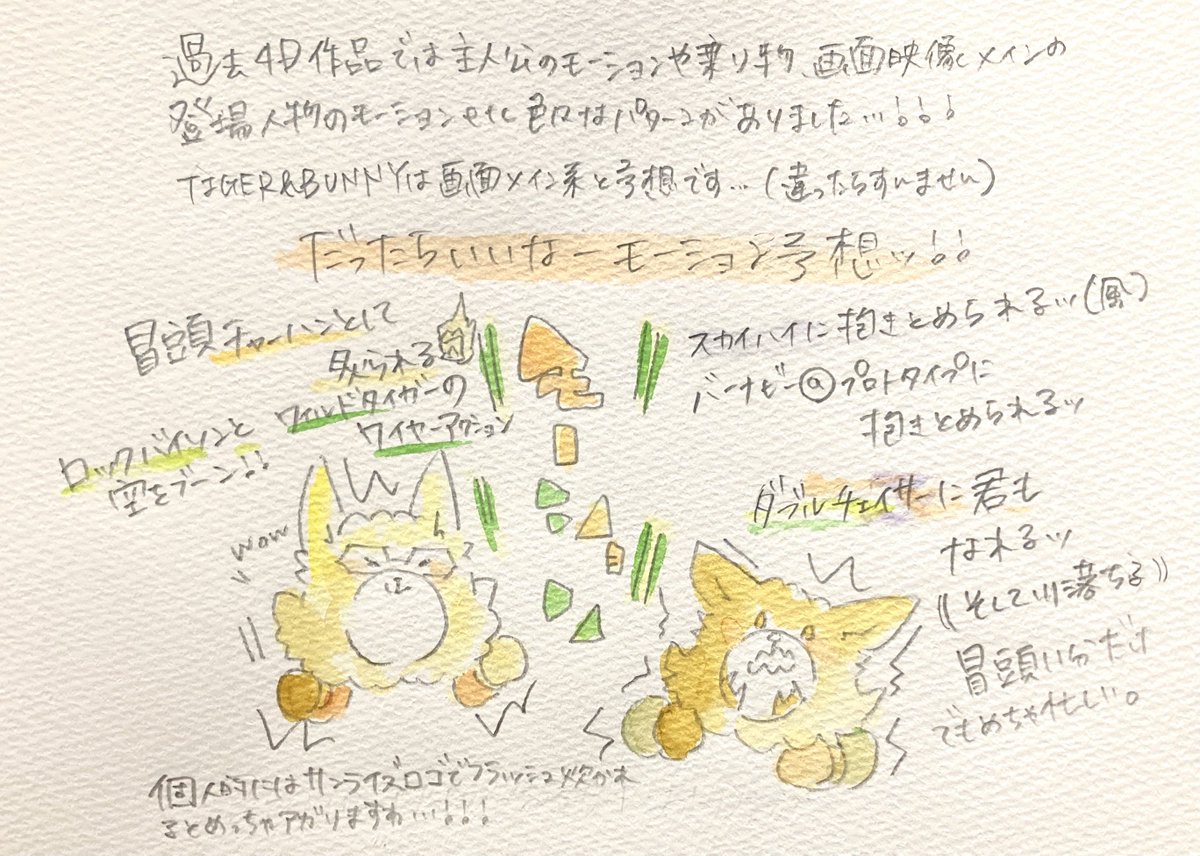 過去4D作品では主人公のモーションや乗り物、画面映像とメインの
登場人物のモーションetc色々なパターンがありました…!!!
TIGER&BUNNYは画面メイン系と予想です…(違ったらすいません)
だったらいいなーモーション予想ッ!!
冒頭チャーハンとして
炙られる
ワイルドタイガーの
ワイヤーアクション
ロックバイソンと
空をブーン!!
スカイハイに抱きとめられるッ(風)
バーナビー@プロトタイプに
抱きとめられるッ
wow
ダブルチェイサーに君も
なれるッ
(そして川落ちる)
冒頭11分だけ
でもめちゃ忙しい。
個人的にはサンライズロゴでフラッシュ炊かれ
るとめっちゃアガりますわ…!!!